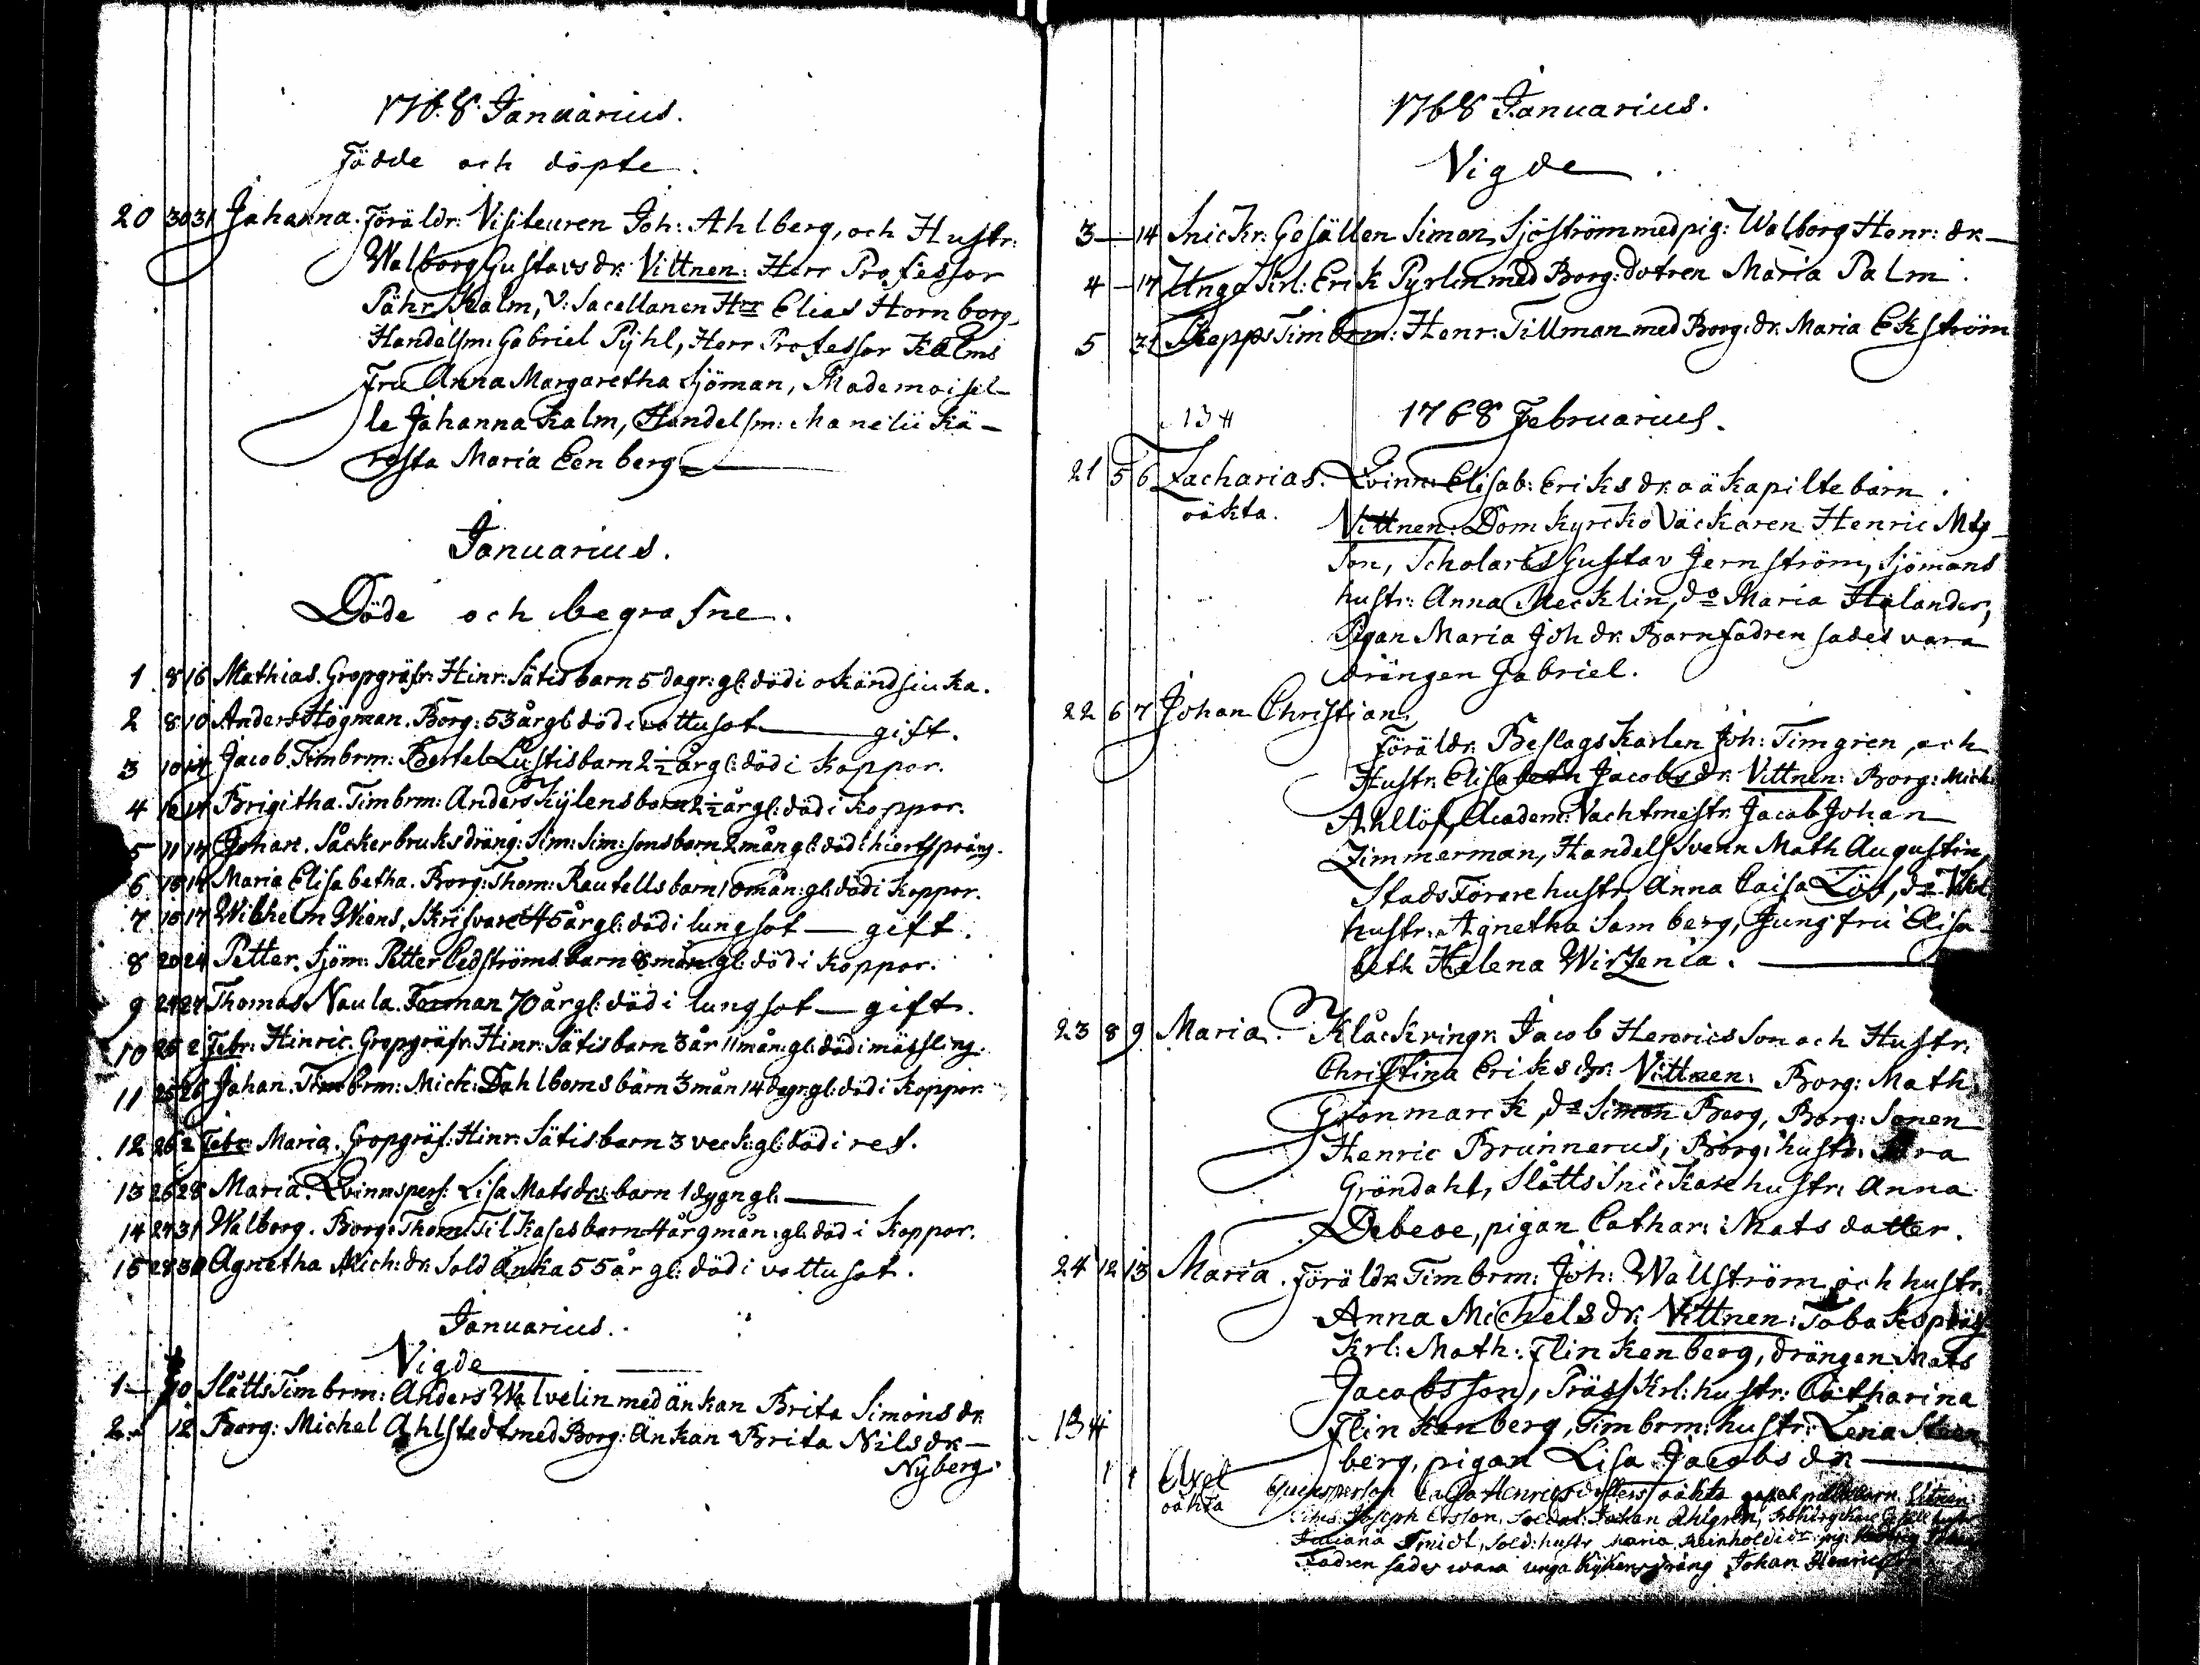 1768 Januarius.
Födde och döpte.
20 30 31 Johanna. Föräldr: Visiteuren Joh: Ahlberg, och Hustr:
Walborg Gustavsdr. Vittnen: Herr Professor
Pähr Kalm, V: Sacellanen Hrr Elias Hornborg,
Handelsm: Gabriel Pÿhl, Herr Professor Kalms
Fru Anna Margaretha Sjöman, Mademoisel-
le Johanna Kalm, Handelsm: kä-
resta Maria Eenberg
Januarius.
Döde och begrafne.
1 8 16 Mathias. Gropgräfr: Hinr: Sätis barn 5 dagr: gl: död i okänd siuka.
2 8 10 Anders Högman. Borg: 53 år gl: död i vattusot gift.
3 10 14 Jacob. Timbrm: Bertel Lustis barn 2½ år gl: död i koppor.
4 10 14 Brigitha. Timbrm: Anders Kÿlens barn 2½ år gl: död i koppor.
5 11 14 Johan. Såckerbruksdräng: Sim: Sim:sons barn 2 mån gl: död i hiertsprång.
6 15 17 Maria Elisabetha. Borg: Thom: Rautells barn 10 mån: gl: död i koppor.
7 15 17 Wilhelm Wiens, Skrifvare 45 år gl: död i lungsot gift.
8 20 24 Petter. Sjöm: Petter Cedströms barn 8 mån gl: död i koppor.
9 24 27 Thomas Naula. Forman 70 år gl: död i lungsot gift.
10 25 2 Febr: Hinric. Gropgräfr: Hinr: Sätis barn 3 år 11 mån: gl: död i mässling.
11 25 26 Johan. Timbrm: Mich: Dahlboms barn 3 mån 14 dagr: gl: död i koppor.
12 26 2 Febr: Maria. Gropgräf: Hinr: Sätis barn 3 veck: gl: död i ref.
13 26 28 Maria. Qvinnspers: Lisa Matsdrs: barn 1 dygn gl:
14 27 31 Walborg. Borg: Thom: Tilkases barn 4 år 9 mån: gl: död i koppor.
15 28 30 Agnetha Mich:dr. Sold Änka 55 år gl: död i vattusot.
Januarius.
Vigde
1 10 SlåttsTimbrm: Anders Walvelin med änkan Brita Simonsdr.
2 12 Borg: Michel Ahlstedt med Borg: Änkan Brita Nilsdr
Nyberg.
1768 Januarius.
Vigde.
3 14 Snickr: Gesällen Simon Sjöström med pig: Walborg Henr: dr
4 17 Unge Krl: Erik Pyrlin med Borg: dotren Maria Palm.
5 31 SkeppsTimbrm: Henr: Tillman med Borg: dr. Maria Ekström
134 1768 Februarius.
21 5 6 Zacharias. Qvinn: Elisab: Eriksdr. oäkta piltebarn.
oäkta. Vittnen. Domkyrcko Väckaren Henric Mts-
son, Scholaris Gustav Jernström, Sjömans
hustr: Anna Mecklin, do Maria Helander,
Pigan Maria Johdr. Barnfadren sades vara
drängen Gabriel.
22 6 7 Johan Christian.
Föräldr. Beslagskarlen Joh: Timgren, och
Hustr. Elisabeth Jacobsdr. Vittnen: Borg: Mich:
Ahllöf, Academ: Vachtmestr. Jacob Johan
Zimmerman, Handelssvenn Math Augustin,
Stads Förare hustr: Anna Caisa Löf, do
hustr: Agnetha Samberg, Jungfru Elisa-
beth Helena Wirzenia.
23 8 9 Maria. Klåckringr. Jacob Henricsson och Hustr.
Christina Eriksdr. Vittnen: Borg: Math:
Grönmarck, do Simon Berg, Borg: Sonen
Henric Brunnerus, Borg: hustr: Sara
Gröndahl, Slåtts Snickare hustr: Anna
Debese, pigan Cathar: Mats dotter.
24 12 13 Maria. Föräldr. Timbrm: Joh: Wallström och hustr.
Anna Michelsdr. Vittnen: Tobakspräss
Krl: Math: Flinkenberg, drängen Mats
Jacobsson, Präss Krl: hustr: Catharina
134 Flinkenberg, Timbrm: hustr: Lena Steen
berg, pigan Lisa Jacobsdr
1 1 Axel Henricsdotters oäkta Vitnen
oäkta Joseph Ersson, Soldat: Johan Ahlgren,
Juliana Smidt, Sold: hustr Maria Reinholdsdr pig:
Fadren sades wara unga dräng Johan Henricsson